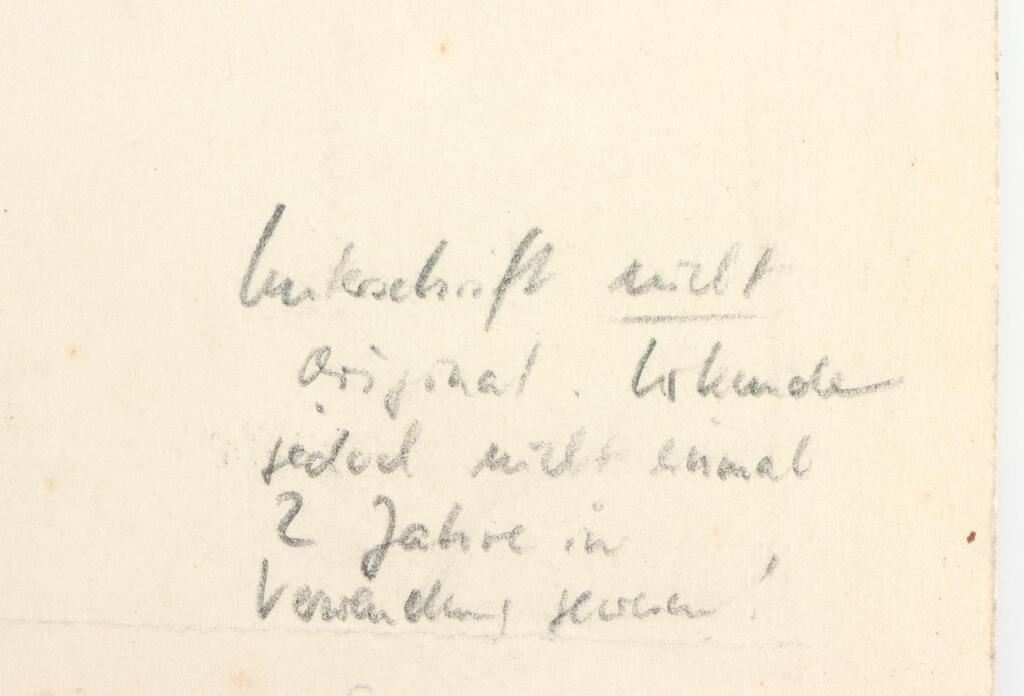 Unterschrift nicht
Original. Urkunde
jedoch nicht einmal
2 Jahre in
Verwendung gewesen!